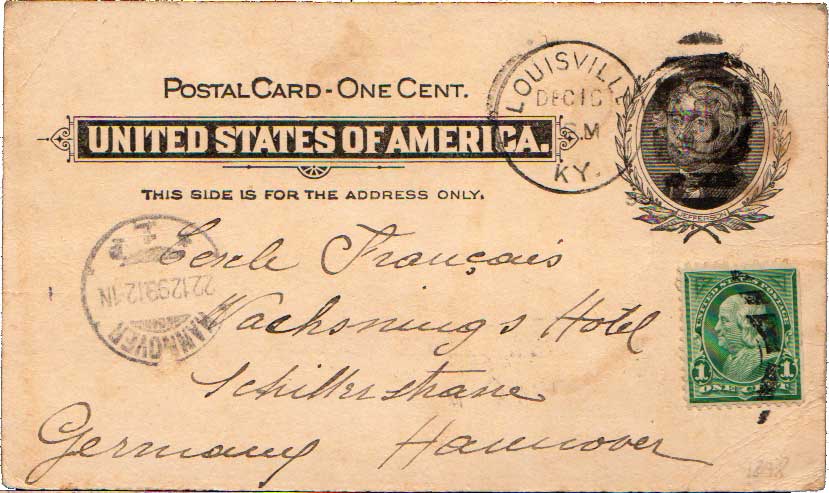 POSTAL CARD - ONE CENT.
UNITED STATES OF AMERICA.
THIS SIDE IS FOR THE ADDRESS ONLY.
LOUISVILLE
DEC 1
M
KY.
JEFFERSON
HANNOVER
22 12 98 12-1N
Cercle Français
Hotel
Schillerstrane
Germany Hannover
UNITED STATES POSTAGE
1 1
ONE CENT